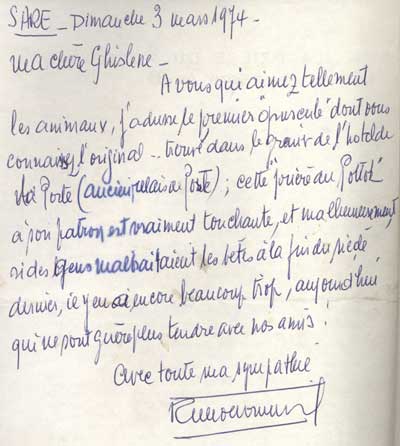 SARE - Dimanche 3 mars 1974 -
Ma chère Ghislene -
A vous qui aimez tellement
les animaux, j'adresse le premier "opuscule" dont vous
connaissez l'original - trouvé dans le grenier de l'hotel de
la Poste (ancien relais de Poste) ; cette "prière du Pottok"
à son patron est vraiment touchante, et malheureusement,
si des gens maltraitaient les bêtes à la fin du siècle
dernier, il y en a encore beaucoup trop, aujourd'hui
qui ne sont guère plus tendre avec nos amis !
Avec toute ma sympathie